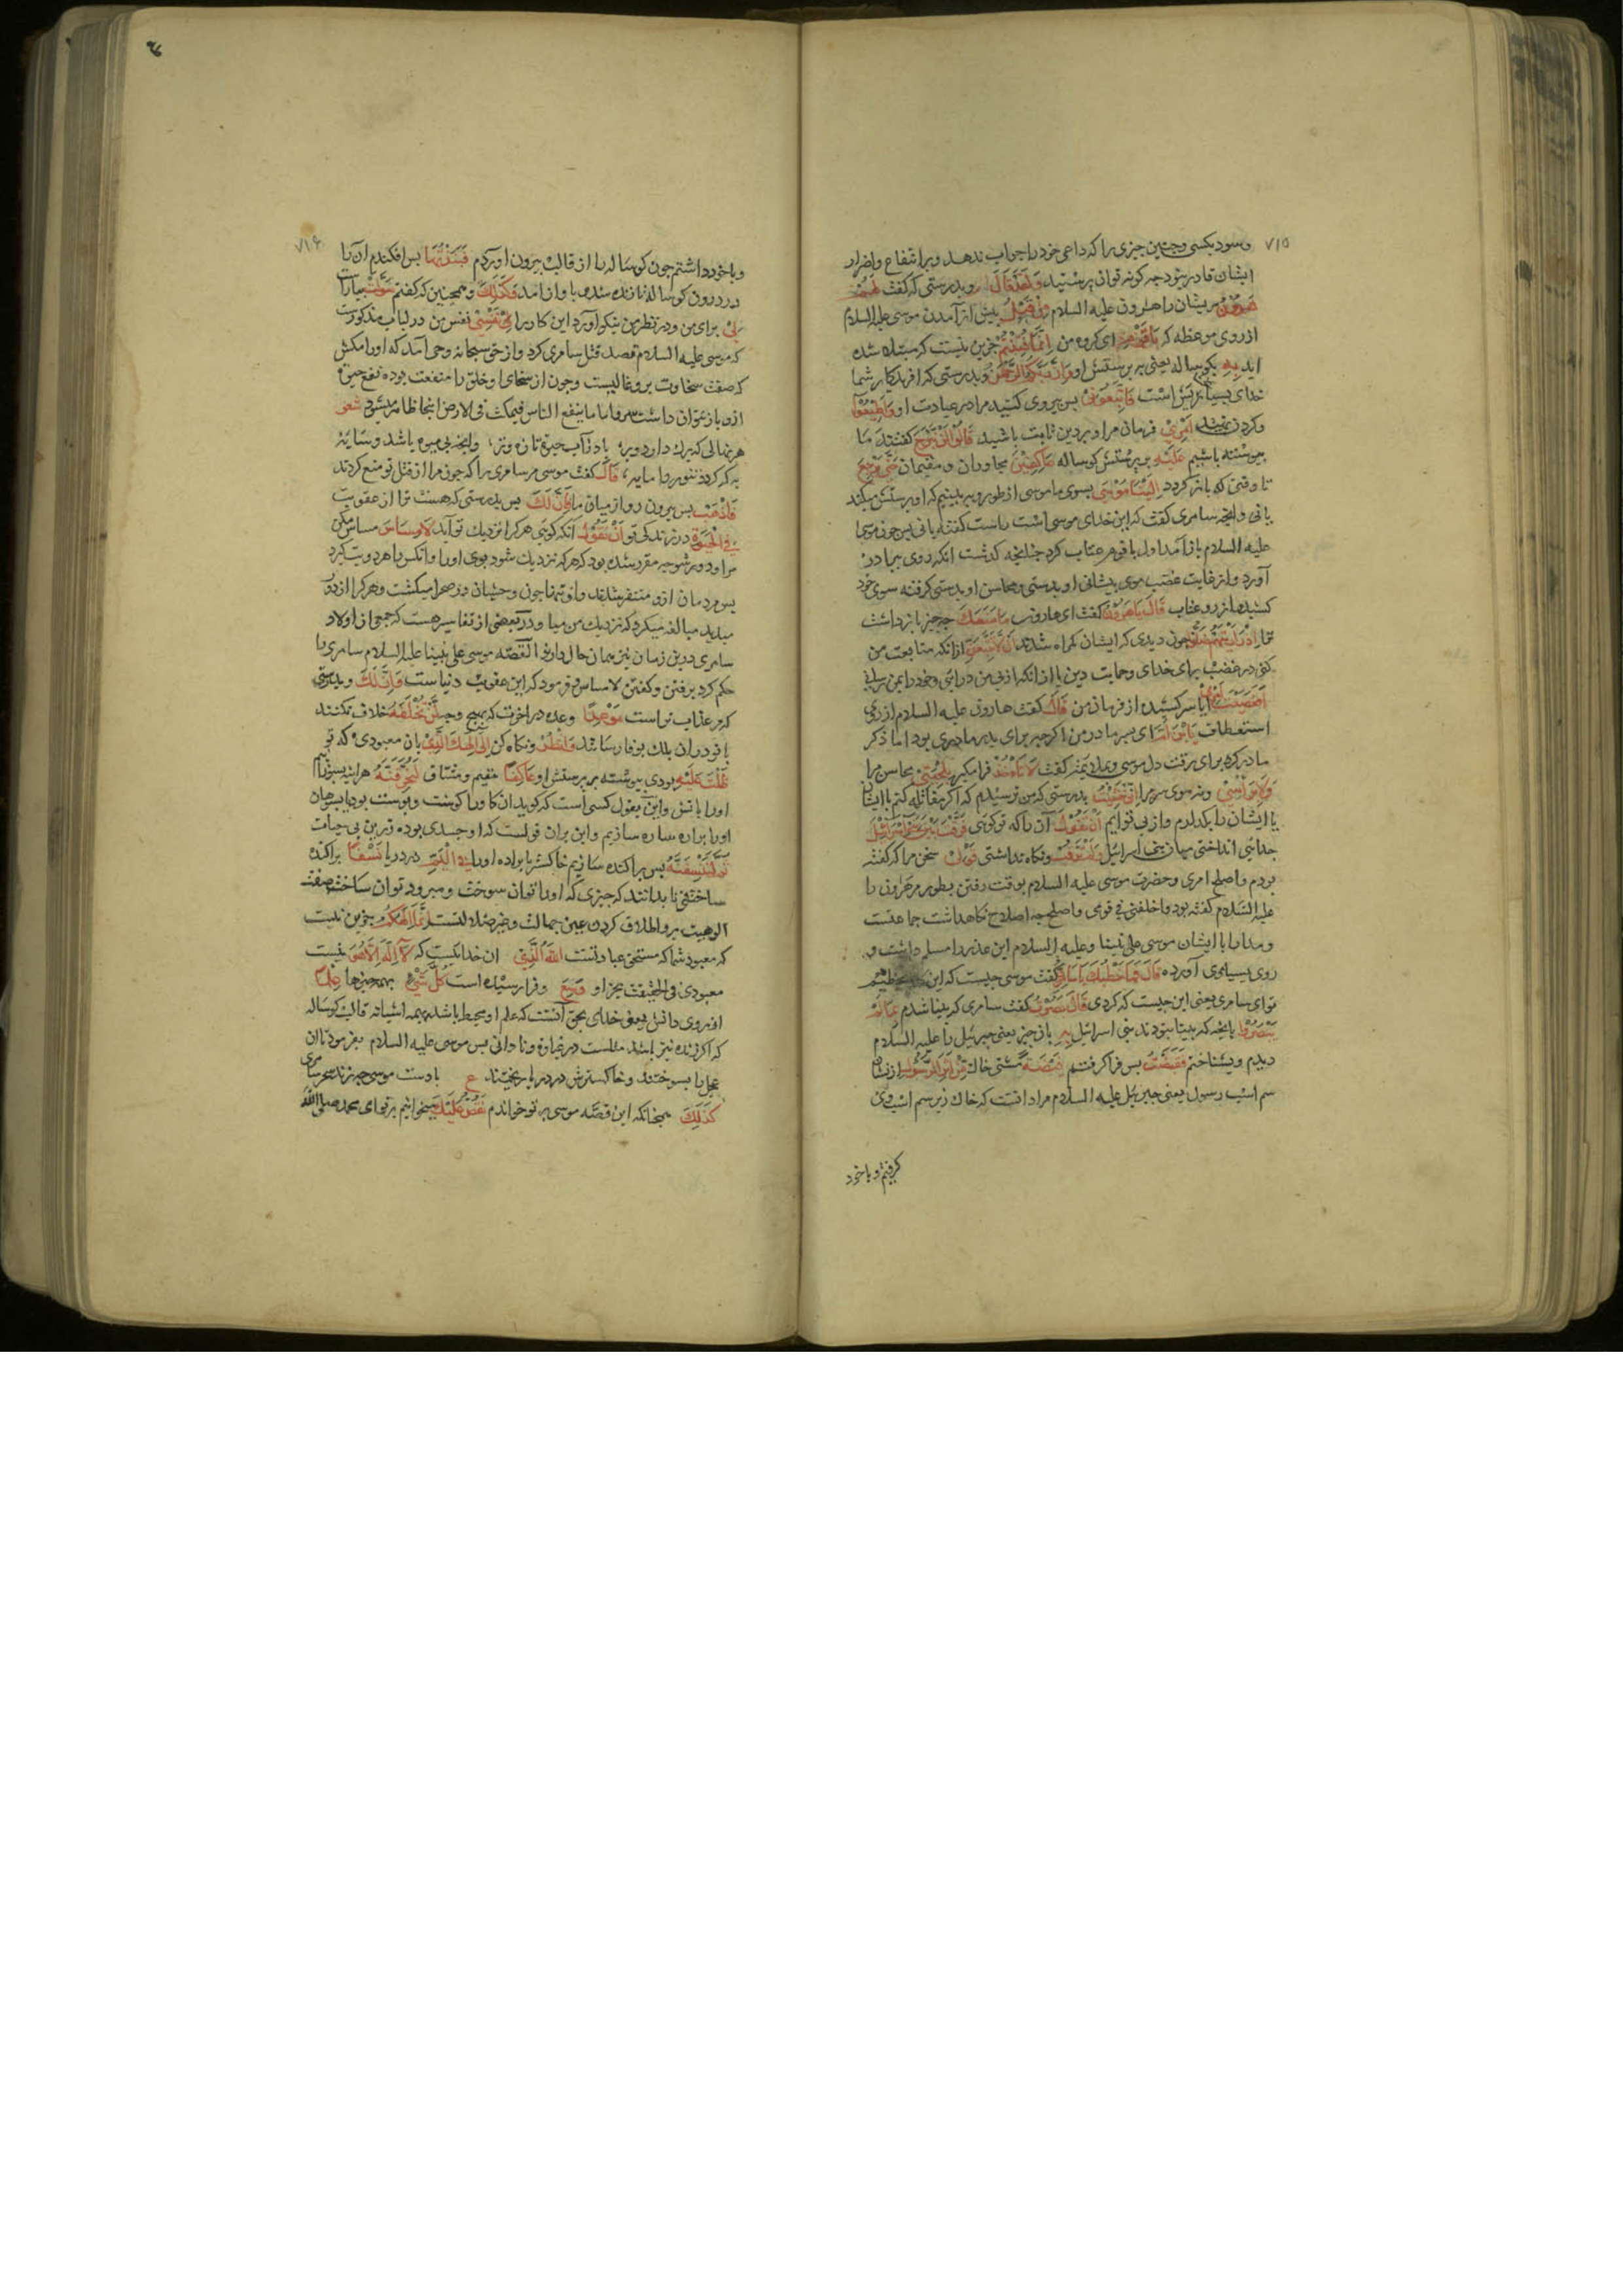 ۷۱۵
و سود بکسی و چنین چیزی را که داعی خود را جواب ندهد و بر انتفاع و اضرار
ایشان قادر نبود چه کونه توان پرستید وَلَقَدْ قَالَ و بدرستی که کفت لَهُمْ
هَرُونُ مر ایشان را هارون علیه السلام مِنْ قَبْلُ پیش از آمدن موسی علیه السلام
از روی موعظه که یَا قَوْمِ ای کروه من اِنَّمَا فُتِنْتُمْ جزین نیست که مبتلا شده
اید بِهِ بکوساله یعنی به پرستش او وَاِنَّ رَبَّکُمُ الرَّحْمٰنُ و بدرستی که افریدکار شما
خدای بسیار بخشایش است فَاتَّبِعُونِی پس پیروی کنید مرا در عبادت او وَاَطِیعُوا
اَمْرِی فرمان مرا و بر دین ثابت باشید قَالُوا لَنْ نَبْرَحَ کفتند ما
پیوسته باشیم عَلَیْهِ بر پرستش کوساله عَاکِفِینَ مجاوران و مقیمان حَتّٰی یَرْجِعَ
تا وقتی که باز کردد اِلَیْنَا مُوسٰی بسوی ما موسی از طور و ببینیم که او پرستش میکند
یا نی و انچه سامری کفت که این خدای موسی است راست کفته یا نی پس چون موسی
علیه السلام باز آمد اول با قوم عتاب کرد چنانچه کذشت انکه روی ببرادر
آورد و از غایت غضب موی پیشانی او بدستی و محاسن او بدستی کرفته سوی خود
کشید از رو عتاب قَالَ یَا هَرُونُ کفت ای هارون مَا مَنَعَکَ چه چیز باز داشت
ترا اِذْ رَاَیْتَهُمْ ضَلُّوا چون دیدی که ایشان کمراه شدند اَنْ لَا تَتَّبِعَنِ از انکه متابعت من
کنی در غضب برای خدای و حمایت دین یا از انکه از پی من درائی و خود را بمن رسانی
اَفَعَصَیْتَ اَمْرِی آیا سر کشیدی از فرمان من قَالَ کفت هارون علیه السلام از روی
استعطاف یَا ابْنَ اُمَّ ای پسر مادر من اکرچه برای پدر مادری بود اما ذکر
مادر کرد برای رقت دل موسی کفت لَا تَأْخُذْ فرا مکیر بِلِحْیَتِی محاسن مرا
وَلَا بِرَأْسِی و نه موی سر مرا اِنِّی خَشِیتُ بدرستی که من ترسیدم که اکر مقاتله کنم با ایشان
یا ایشان را بکذارم و از پی تو ایم اَنْ تَقُولَ آن را که تو کوئی فَرَّقْتَ بَیْنَ بَنِی اِسْرَائِیلَ
جدائی انداختی میان بنی اسرائیل وَلَمْ تَرْقُبْ و نکاه نداشتی قَوْلِی سخن مرا که کفته
بودم و اصلح امری و حضرت موسی علیه السلام بوقت رفتن بطور مر هرون را
علیه السلام کفته بود و اخلفنی فی قومی و اصلح چه اصلاح نکاهداشت جماعتست
و مدارا با ایشان موسی علی نبینا و علیه السلام این عذر را مسلم داشت و
روی بسامری آورده قَالَ فَمَا خَطْبُکَ یَا سَامِرِیُّ کفت موسی چیست که این
تو ای سامری یعنی این چیست که کردی قَالَ بَصُرْتُ کفت سامری که بینا شدم بِمَا لَمْ
یَبْصُرُوا بانچه که بینا نبودند بنی اسرائیل بِهِ بان چیز یعنی جبرئیل را علیه السلام
دیدم و بشناختم فَقَبَضْتُ پس فرا کرفتم قَبْضَةً مشتی خاک مِنْ اَثَرِ الرَّسُولِ از نشان
سم اسب رسول یعنی جبرئیل علیه السلام مراد انست که خاک زیر سم اسب وی
کرفتم و با خود
۷۱۶
و با خود داشتم چون کوساله را از قالب بیرون اوردم فَنَبَذْتُهَا پس افکندم ان را
در درون کوساله تا زنده شده باواز امد وَکَذٰلِکَ و همچنین که کفتم سَوَّلَتْ بیاراست
لِی برای من و در نظر من نیکو آورد این کار را نَفْسِی نفس من در لباب مذکورست
که موسی علیه السلام قصد قتل سامری کرد و از حق سبحانه وحی آمد که او را مکش
که صفت سخاوت برو غالبست و چون از سخای او خلق را منفعت بوده نفع حیوة
ازو باز نتوان داشت و اما ما ینفع الناس فیمکث فی الارض اینجا ظاهر میشود شعر
هر نهالی که برک دارد و بر باد از آب حیوة تازه و تر وانچه بی میوه باشد و سایه
به که کردد تنور را مایه قَالَ کفت موسی مر سامری را که چون مرا از قتل تو منع کردند
فَاذْهَبْ پس بیرون رو از میان ما فَاِنَّ لَکَ پس بدرستی که هست ترا از عقوبت
فِی الْحَیٰوةِ در زندکی تو اَنْ تَقُولَ انکه کوئی هر کرا نزدیک تو آید لَا مِسَاسَ مساس مکن
مرا و دور شو چه مقرر شده بود که هر که نزدیک شود بوی او را و انکس را هر دو تب کیرد
پس مردمان ازو متنفر شدند و او تنها چون وحشیان در صحرا میکشت و هر کرا از دور
میدید مبالغه میکرد که نزدیک من میا و در بعضی از تفاسیر هست که جمعی از اولاد
سامری درین زمان نیز همان حال دارند القصه موسی علی نبینا علیه السلام سامری را
حکم کرد برفتن و کفتن لا مساس و فرمود که این عقوبت دنیاست وَاِنَّ لَکَ و بدرستی
که مر عذاب تراست مَوْعِدًا وعده در اخرت که بهیچ وجه لَنْ تُخْلَفَهُ خلاف نکنند
با تو در ان بلک بوفا رسانند وَانْظُرْ و نکاه کن اِلٰی اِلٰهِکَ الَّذِی بان معبودی که تو
ظَلْتَ عَلَیْهِ بودی پیوسته بر پرستش او عَاکِفًا مقیم و مشتاق لَنُحَرِّقَنَّهُ هرآینه بسوزانیم
او را باتش و این بقول کسی است که کوید ان کاو را کوشت و پوست بود یا بسوهان
او را براده ساده سازیم و این بران قولست که او جسدی بوده زرین بی حیات
ثُمَّ لَنَنْسِفَنَّهُ پس پراکنده سازیم خاکستر یا براده او را فِی الْیَمِّ در دریا نَسْفًا پراکنده
ساختنی تا بدانند که چیزی که او را توان سوخت و میرود توان ساخت صفت
الوهیت برو اطلاق کردن عین جهالت و ضلالتست اِنَّمَا اِلٰهُکُمُ جزین نیست
که معبود شما که مستحق عبادتست اللّٰهُ الَّذِی ان خدائیست که لَا اِلٰهَ اِلَّا هُوَ نیست
معبودی فی الحقیقت بجز او وَسِعَ و فرا رسیده است کُلَّ شَیْءٍ بهمه چیزها عِلْمًا
از روی دانش یعنی خدای بحق آنست که علم او محیط باشد بهمه اشیا نه قالب کوساله
که اکر زنده نیز باشد مثلست در غباوة و نادانی پس موسی علیه السلام بفرمود تا ان
عجل را بسوختند و خاکسترش در دریا ریختند ع با دست موسی چه زند سحر سامری
کَذٰلِکَ همچنانکه این قصه موسی بر تو خواندم نَقُصُّ عَلَیْکَ میخوانیم بر تو ای محمد صلی الله